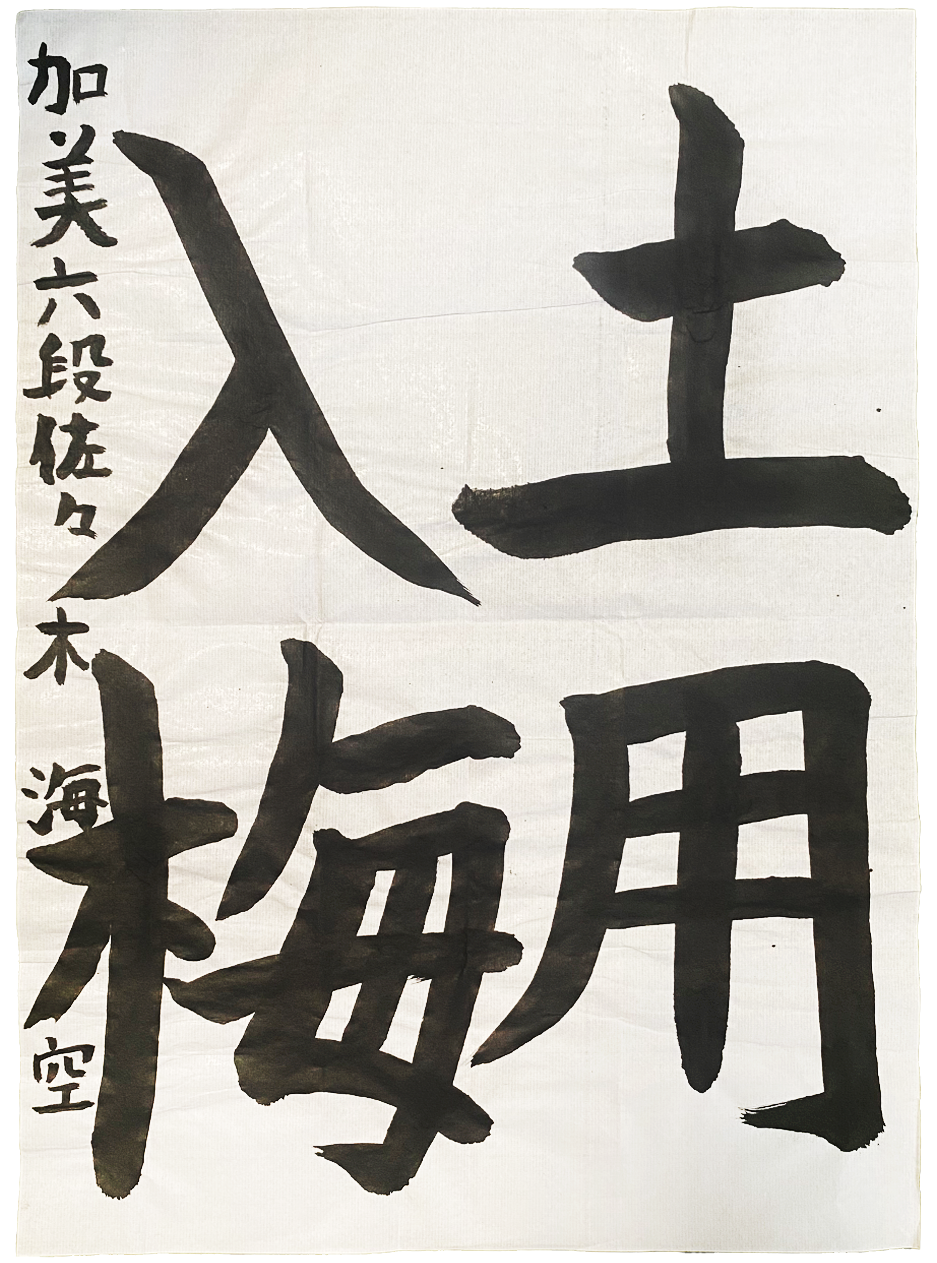 土用
入梅
加美六段佐々木海空